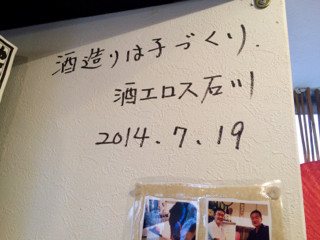 酒造りは子づくり.
酒エロス石川
2014.7.19